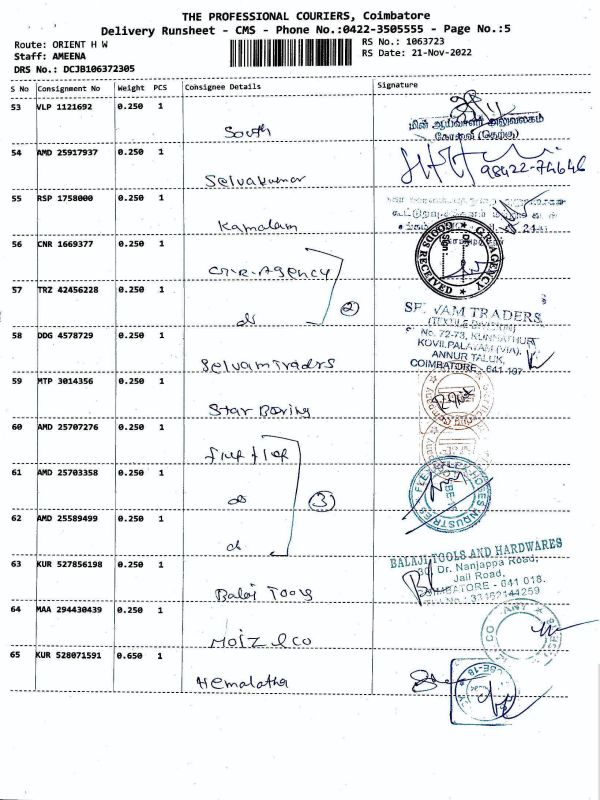 THE PROFESSIONAL COURIERS, Coimbatore
Delivery Runsheet - CMS - Phone No.:0422-3505555 - Page No.:5
Route: ORIENT H W
RS No.: 1063723
Staff: AMEENA
RS Date: 21-Nov-2022
DRS No.: DCJB106372305
S No Consignment No Weight PCS Consignee Details Signature
53 VLP 1121692 0.250 1 South
மின் ஆய்வாளர் அலுவலகம்
கோவை (தெற்கு)
54 AMD 25917937 0.250 1 Selvakumar 98422-74646
55 RSP 1758000 0.250 1 Kamalam
56 CNR 1669377 0.250 1 C.R. Agency
GOODS RECEIVED
AGENCY
57 TRZ 42456228 0.250 1 do 2
58 DDG 4578729 0.250 1 Selvam Traders
TRADERS
(TEXTILE DIVISION)
No. 72-73, KUNNATHUR
KOVILPALAYAM (VIA),
ANNUR TALUK,
COIMBATORE - 641 107
59 MTP 3014356 0.250 1 Star Boring
60 AMD 25707276 0.250 1
61 AMD 25703358 0.250 1 do 3
62 AMD 25589499 0.250 1 d
INDUSTRIES
63 KUR 527856198 0.250 1 Balaj Tools
BALAJI TOOLS AND HARDWARES
Dr. Nanjappa Road,
Jail Road,
COIMBATORE - 641 018.
64 MAA 294430439 0.250 1 Moiz & co
65 KUR 528071591 0.650 1 Hemalatha
CBE-18